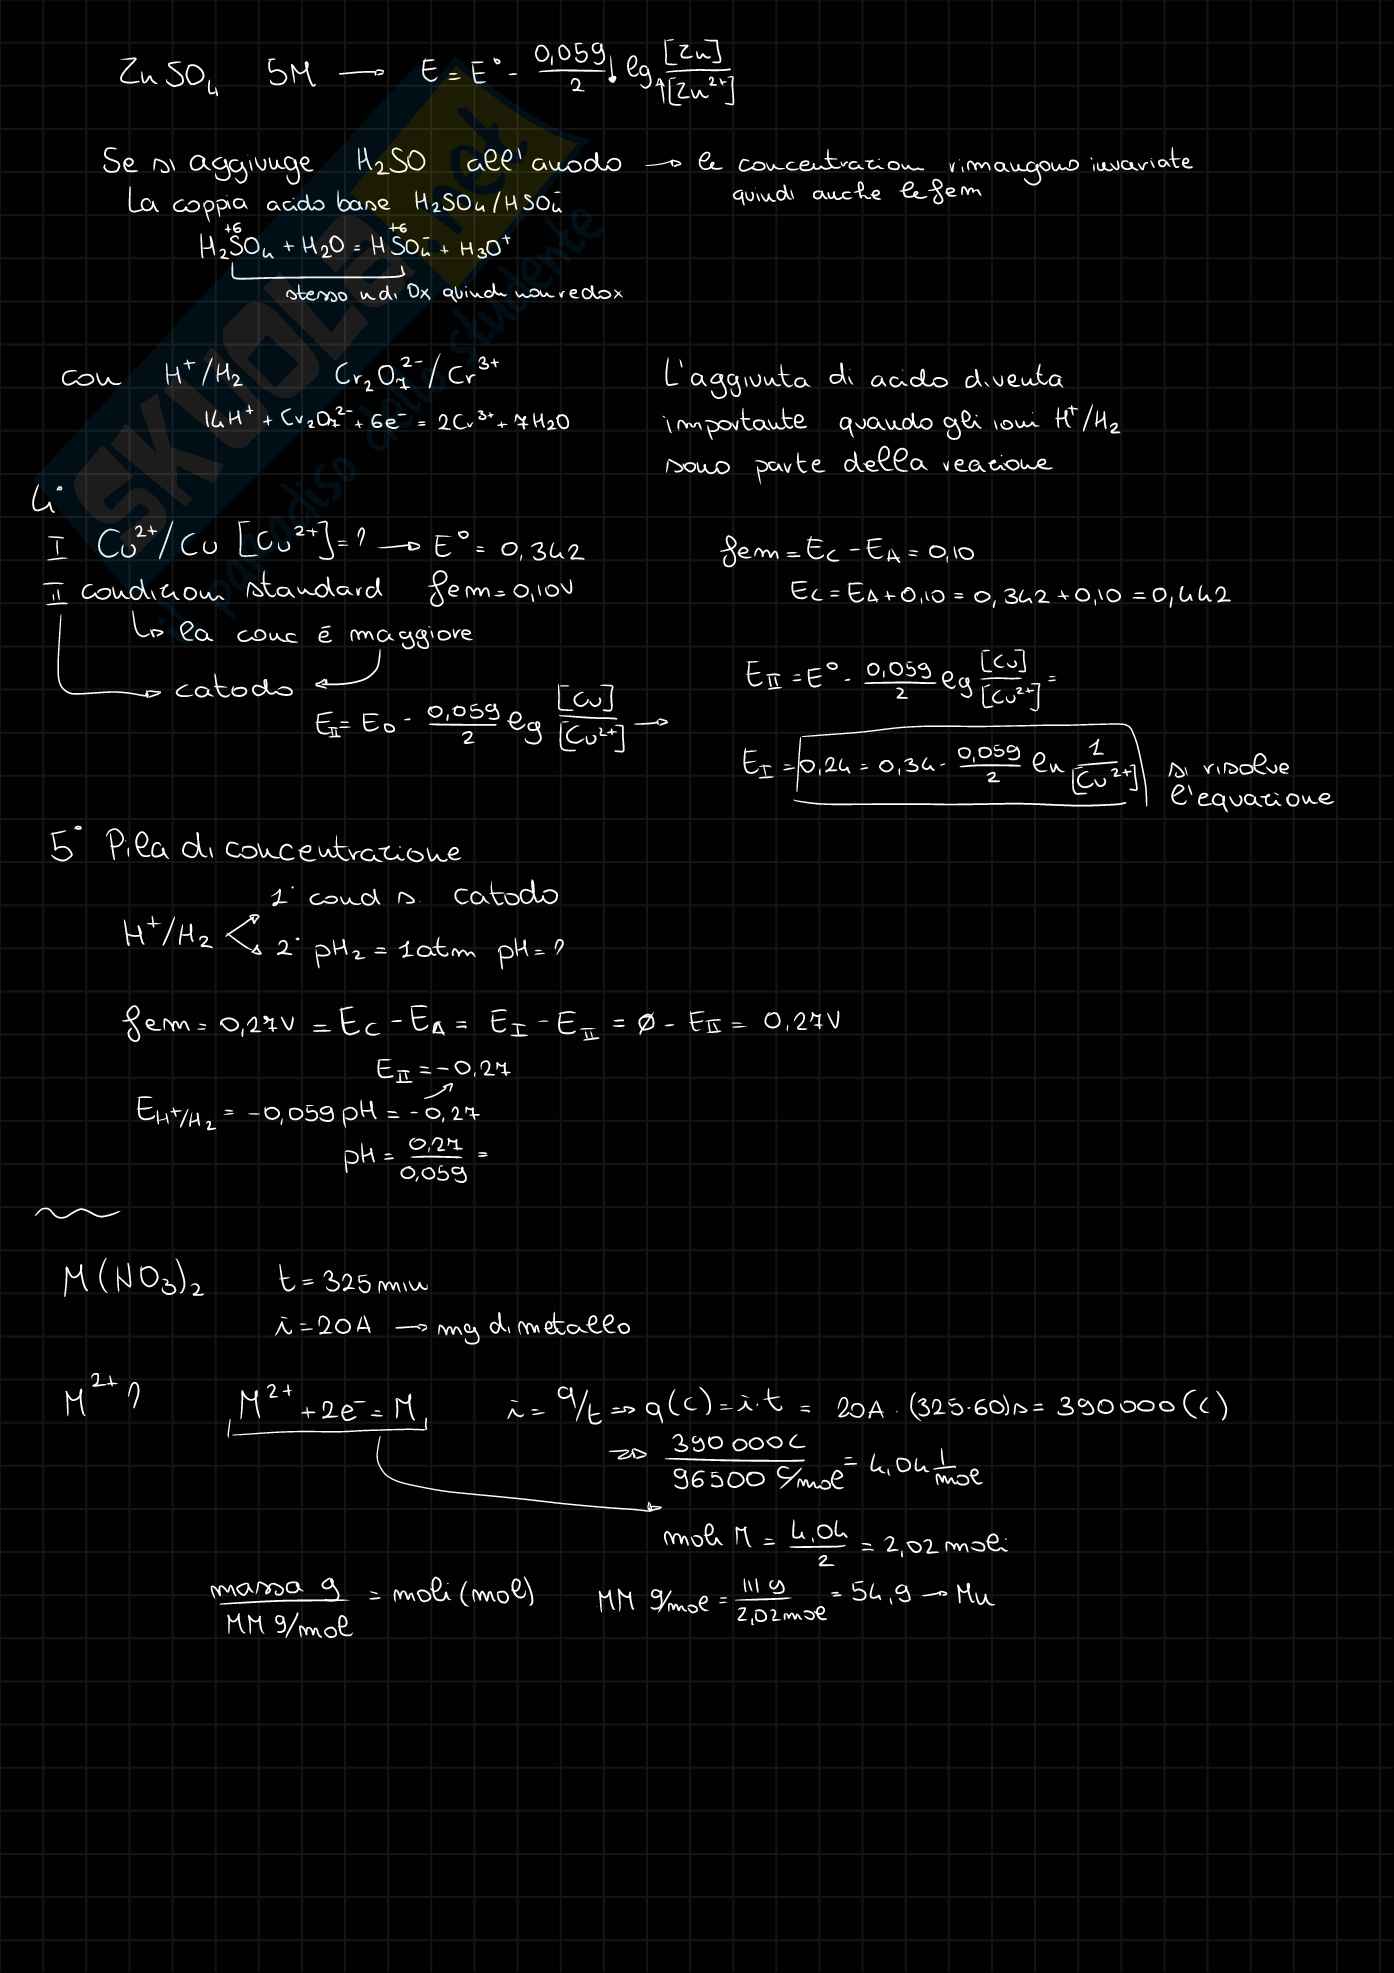 ZnSO₄ 5M → E = E° - 0,059/2 ↓ lg ↑ [Zn]/[Zn²⁺]
Se si aggiunge H₂SO all'anodo → le concentrazioni rimangono invariate
quindi anche le fem
La coppia acido base H₂SO₄/HSO₄⁻
+6 +6
H₂SO₄ + H₂O = HSO₄⁻ + H₃O⁺
stesso n di Ox quindi non redox
con H⁺/H₂ Cr₂O₇²⁻/Cr³⁺
14H⁺ + Cr₂O₇²⁻ + 6e⁻ = 2Cr³⁺ + 7H₂O
L'aggiunta di acido diventa
importante quando gli ioni H⁺/H₂
sono parte della reazione
4°
I Cu²⁺/Cu [Cu²⁺]=? → E° = 0,342
II condizioni standard fem=0,10V
↳ la conc è maggiore
→ catodo ←
E_II = E₀ - 0,059/2 lg [Cu]/[Cu²⁺] →
fem = E_C - E_A = 0,10
E_C = E_A + 0,10 = 0,342 + 0,10 = 0,442
E_II = E° - 0,059/2 lg [Cu]/[Cu²⁺] =
E_I = 0,24 = 0,34 - 0,059/2 ln 1/[Cu²⁺] si risolve
l'equazione
5° Pila di concentrazione
1° cond s. catodo
H⁺/H₂
2° pH₂ = 1atm pH=?
fem = 0,27V = E_C - E_A = E_I - E_II = Ø - E_II = 0,27V
E_II = -0,27
E_H⁺/H₂ = -0,059 pH = -0,27
pH = 0,27/0,059 =
M(NO₃)₂ t = 325 min
i = 20A → mg di metallo
M²⁺? M²⁺ + 2e⁻ = M i = q/t ⇒ q(C) = i·t = 20A · (325·60)s = 390000 (C)
⇒ 390 000C/96500 C/mol = 4,04 1/mol
moli M = 4,04/2 = 2,02 moli
massa g/MM g/mol = moli (mol) MM g/mol = 111 g/2,02mol = 54,9 → Mn
SKUOLA.net
il paradiso dello studente